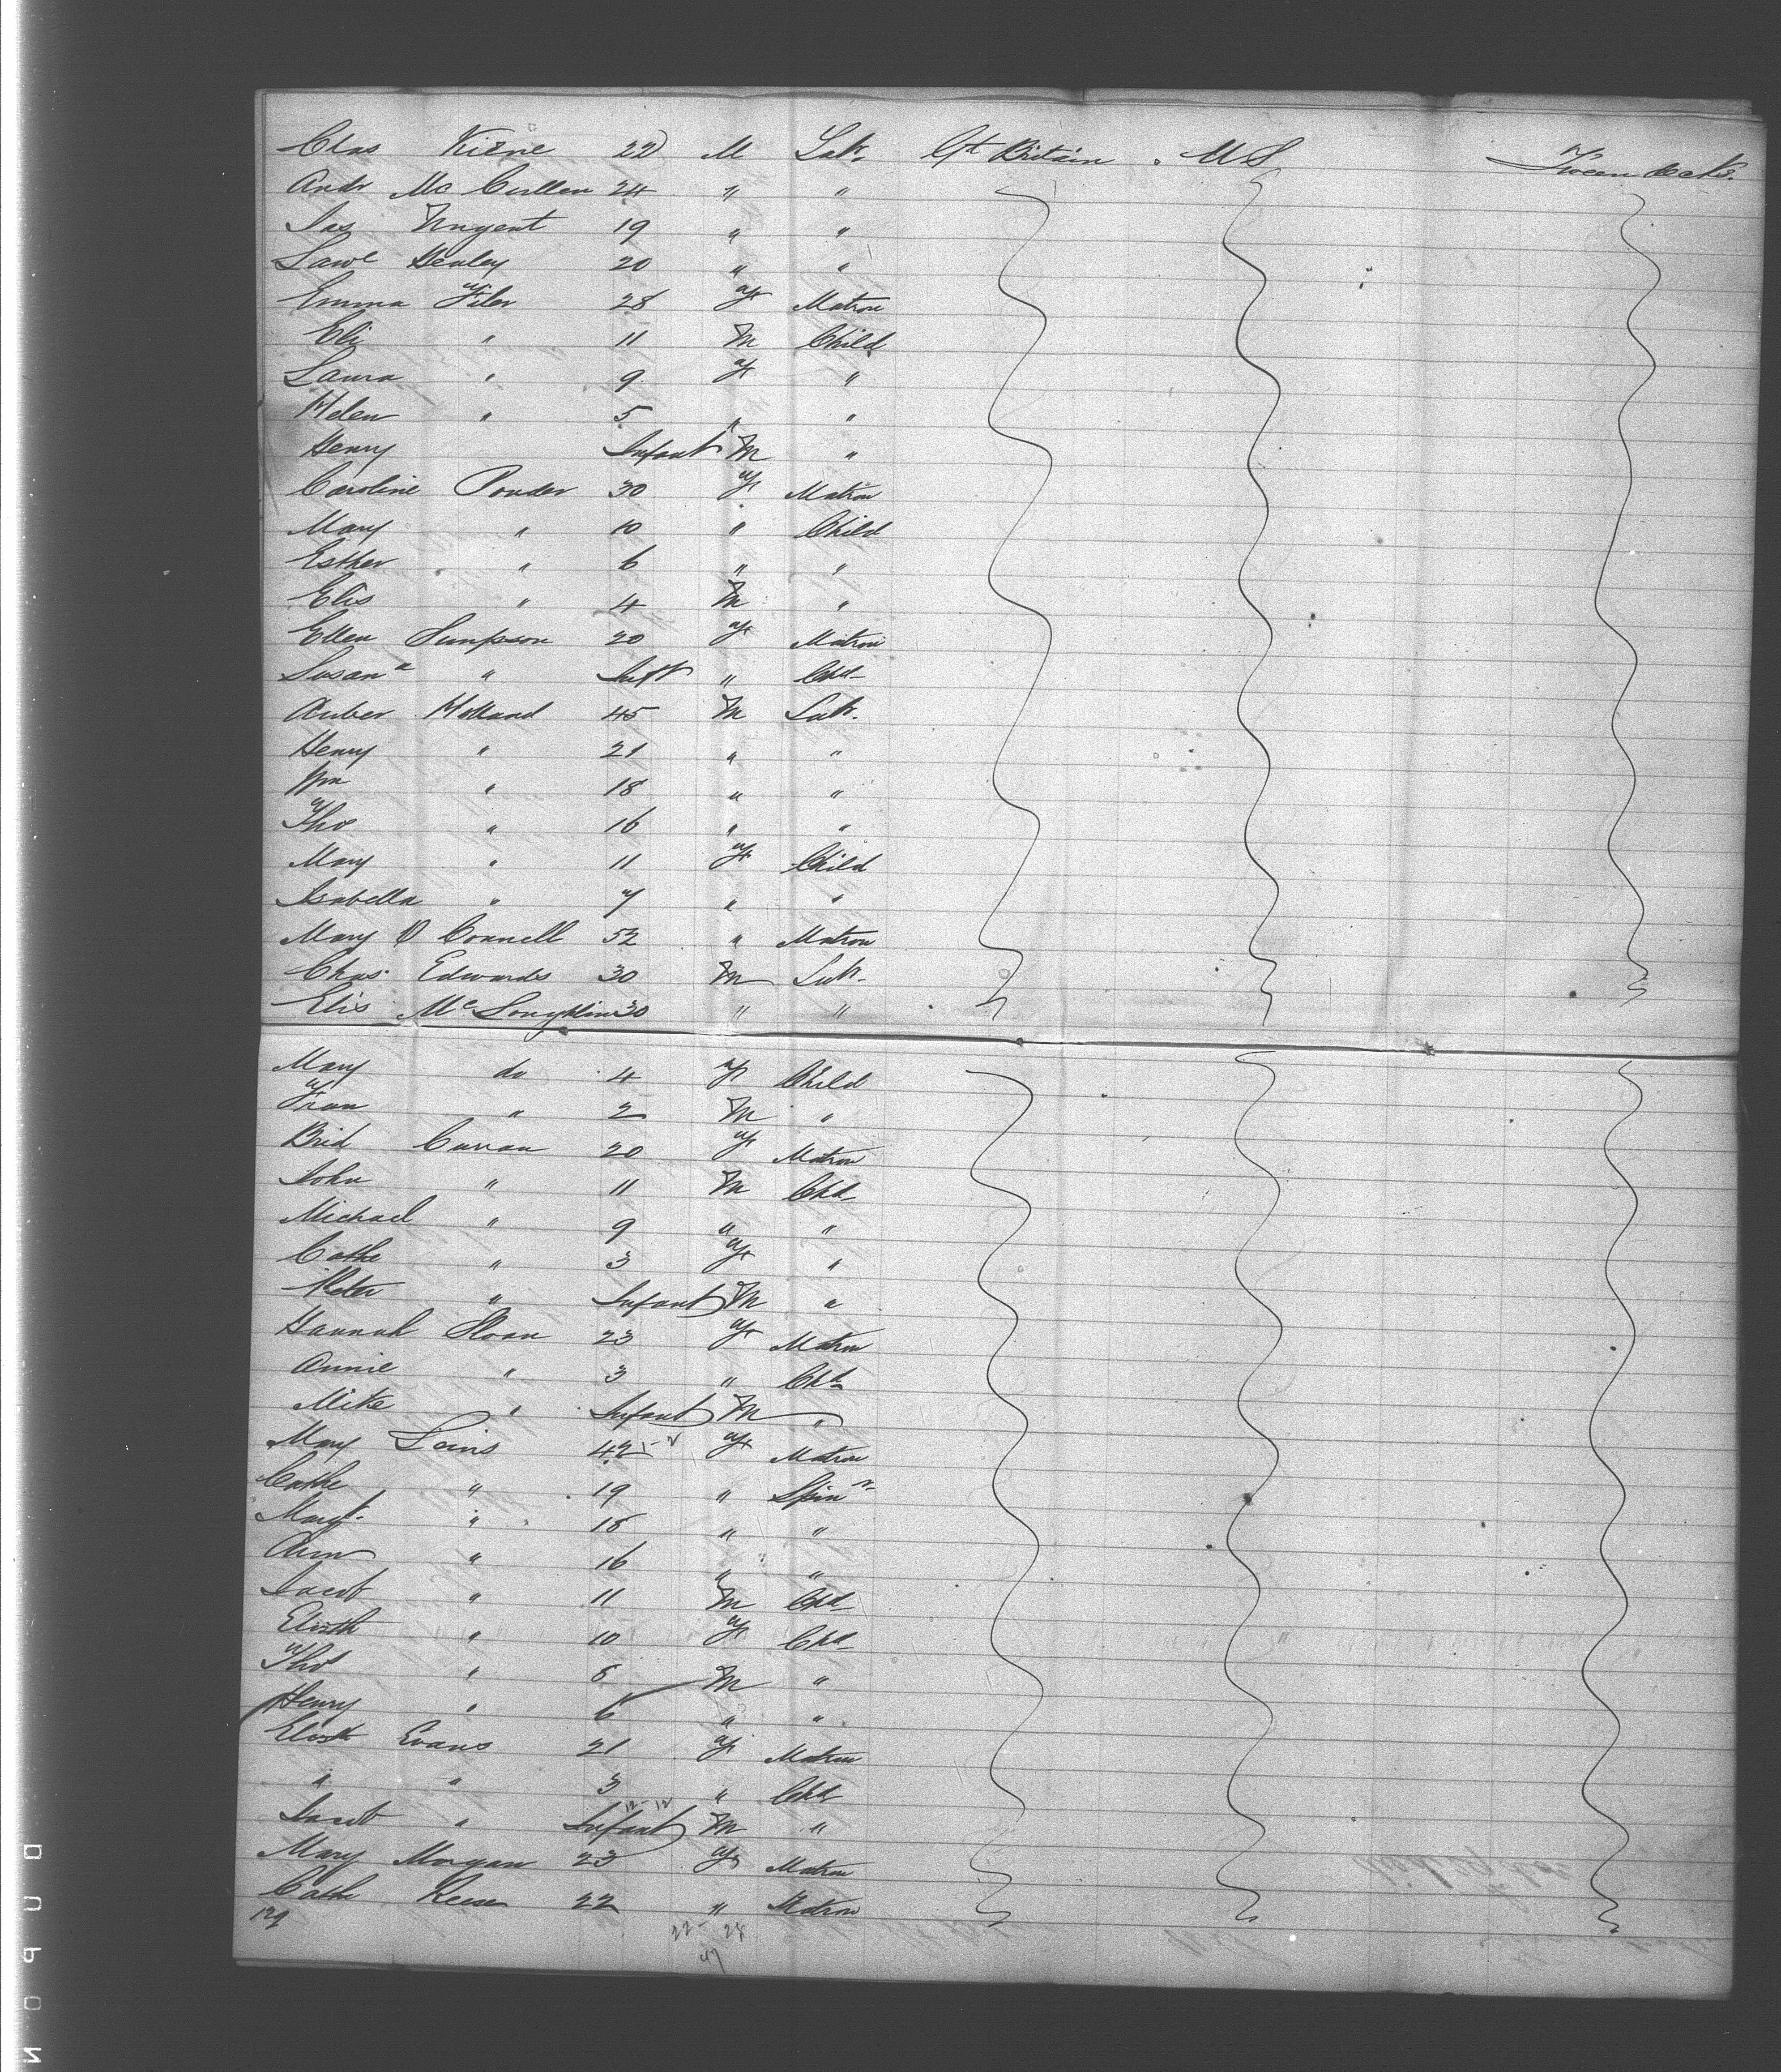 Chas Kiene 22 M Labr Gt Britain . U S Tween decks.
Andr Mc Cullen 24 " "
Jas Nugent 19 " "
Lawe Healey 20 " "
Emma Filer 28 F Matron
Eli " 11 M Child
Laura " 9 F "
Helen " 5 " "
Henry Infant M "
Caroline Ponder 30 F Matron
Mary " 10 " Child
Esther " 6 " "
Elis " 4 M "
Ellen Simpson 20 F Matron
Susana " Inft " Chd
Auber Holland 45 M Labr.
Henry " 21 " "
Wm " 18 " "
Thos " 16 " "
Mary " 11 F Child
Isabella " 7 " "
Mary O Connell 52 " Matron
Chas. Edwards 30 M Labr
Elis Mc Loughlin 30 " "
Mary do 4 F Child
Fran " 2 M "
Brid Curran 20 F Matron
John " 11 M Chd
Michael " 9 " "
Cathe " 3 F "
Peter " Infant M "
Hannah Sloan 23 F Matron
Annie " 3 " Chd
Mike " Infant M "
Mary Lains 42 F Matron
Cathe " 19 " Spinr
Margt. " 18 " "
Ann " 16 " "
Jacob " 11 M Chd
Elizth " 10 F Chd
Thos " 8 M "
Henry " 6 " "
Elizth Evans 21 F Matron
" " 3 " Chd
Jacob " Infant M "
Mary Morgan 23 F Matron
Cathe Reese 22 " Matron
129
22 - 28
47
DUPON